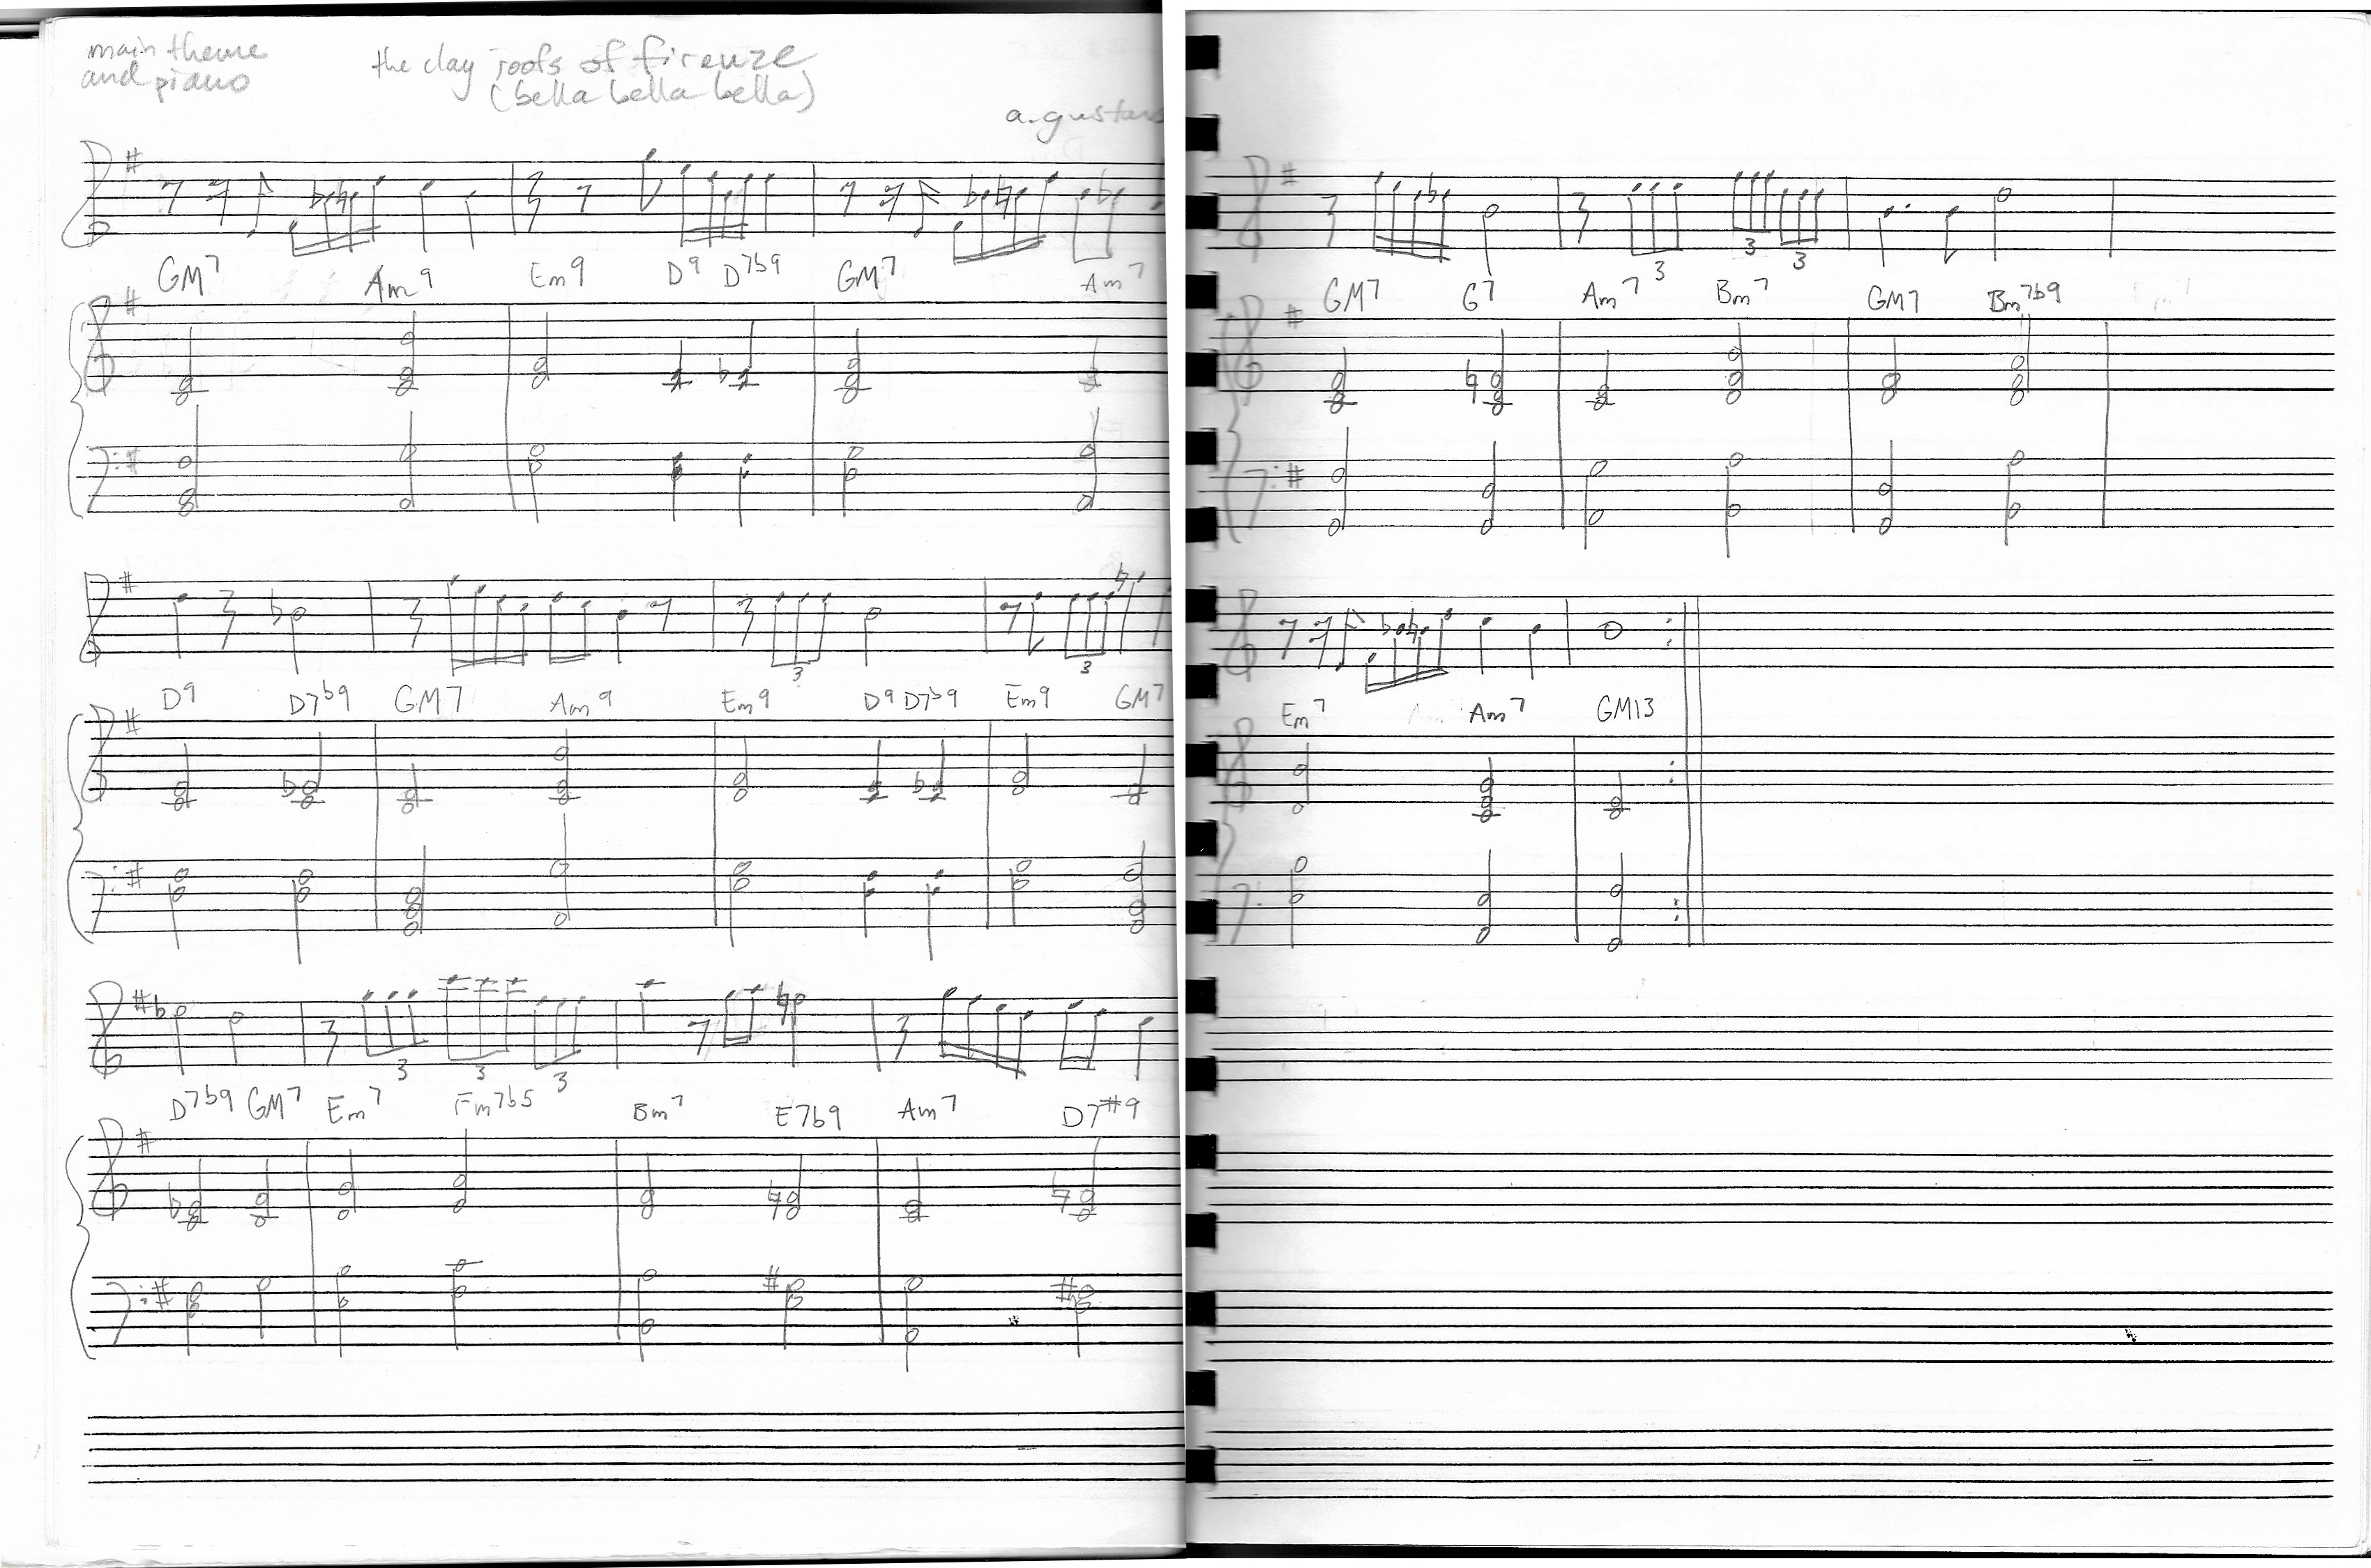 main theme
and piano
the clay roofs of firenze
(bella bella bella)
GM7 Am9 Em9 D9 D7b9 GM7 Am7
3 3
D9 D7b9 GM7 Am9 Em9 D9 D7b9 Em9 GM7
3 3 3
D7b9 GM7 Em7 Fm7b5 Bm7 E7b9 Am7 D7#9
3 3 3
GM7 G7 Am7 Bm7 GM7 Bm7b9
Em7 Am7 GM13